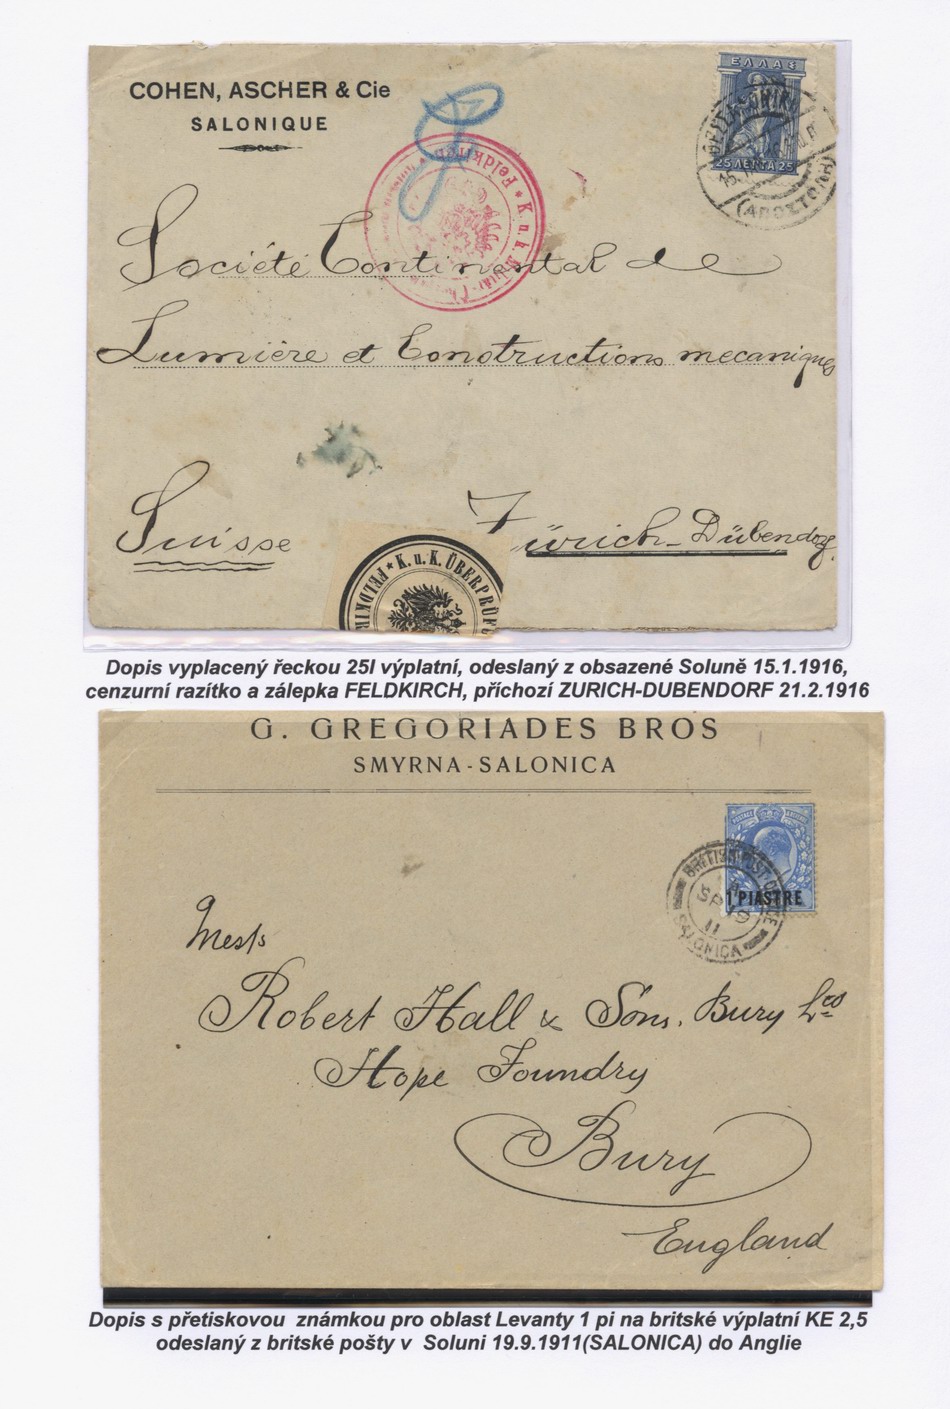 COHEN, ASCHER & Cie
SALONIQUE
ΕΛΛΑΣ
25 ΛΕΠΤΑ 25
K. u. k.
Feldkirch
Société Continantal de
Lumière et Constructions mecaniques
Suisse
Zürich-Dübendorf.
K. u. K. ÜBERPRÜF
Dopis vyplacený řeckou 25l výplatní, odeslaný z obsazené Soluně 15.1.1916,
cenzurní razítko a zálepka FELDKIRCH, příchozí ZURICH-DUBENDORF 21.2.1916
G. GREGORIADES BROS
SMYRNA-SALONICA
BRITISH POST OFFICE
SP 19
11
SALONICA
1 PIASTRE
Messrs
Robert Hall & Sons, Bury Ltd
Hope Foundry
Bury
England
Dopis s přetiskovou známkou pro oblast Levanty 1 pi na britské výplatní KE 2,5
odeslaný z britské pošty v Soluni 19.9.1911(SALONICA) do Anglie